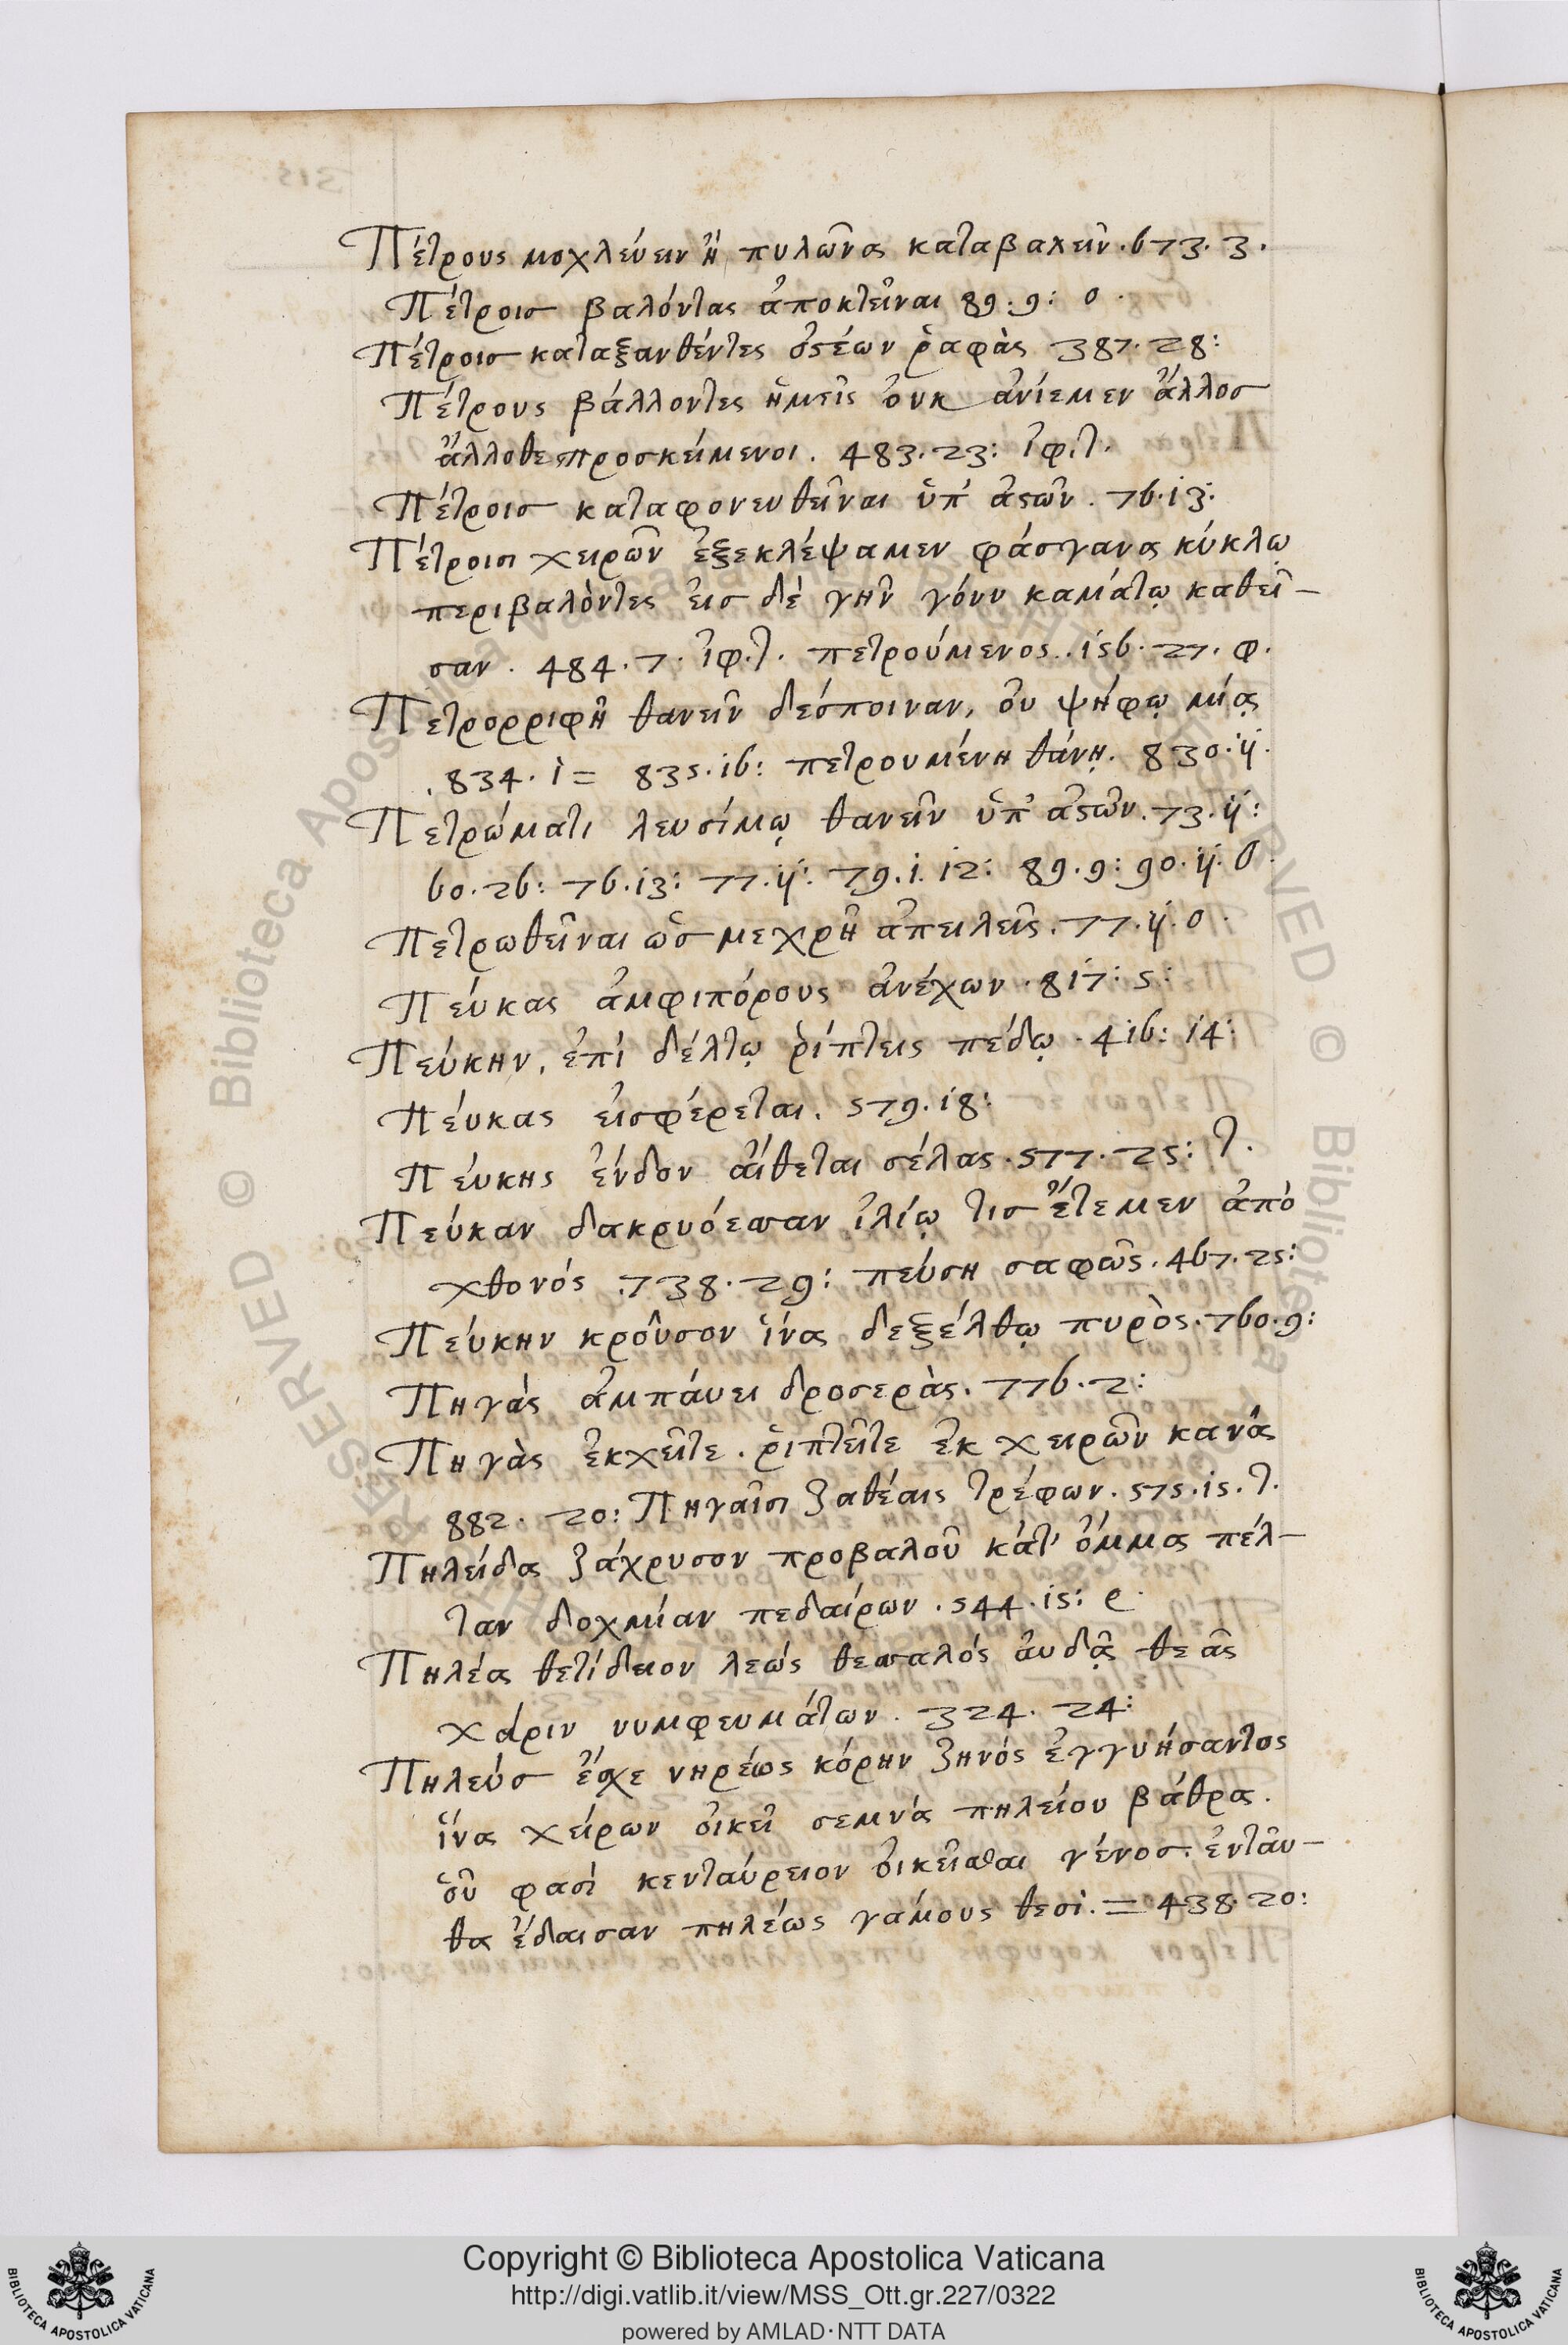 Πέτρους μοχλεύειν ἢ πυλῶνας καταβαλεῖν. 673. 3.
Πέτροις βαλόντας ἀποκτεῖναι 89. 9: ο.
Πέτροις καταξανθέντες ὀϛέων ῥαφὰς 387. 28:
Πέτρους βάλλοντες ἡμεῖς ὀυκ ἀνίεμεν ἄλλος
ἄλλοθε προσκείμενοι. 483. 23: ἰφ. τ.
Πέτροις καταφονευθεῖναι ὑπ' ἀϛῶν. 76. 13:
Πέτροισι χειρῶν ἐξεκλέψαμεν φάσγανα κύκλῳ
περιβαλόντες εἰς δὲ γῆν γόνυ καμάτῳ καθεῖ–
σαν. 484. 7. ἰφ. τ. πετρούμενος. 156. 27. φ.
Πετρορριφῆ θανεῖν δέσποιναν, ὀυ ψήφῳ μιᾷ
. 834. 1 = 835. 16: πετρουμένη θάνῃ. 830. 11.
Πετρώματι λευσίμῳ θανεῖν ὑπ' ἀϛῶν. 73. 11:
60. 26: 76. 13: 77. 11: 79. 1. 12: 89. 9: 90. 11. ο.
Πετρωθεῖναι ὥς με χρῆ ἀπειλεῖς. 77. 11. ο.
Πέυκας ἀμφιπόρους ἀνέχων. 817: 5:
Πεύκην, ἐπὶ δέλτῳ ῥίπτεις πέδῳ. 416: 14:
Πέυκας εἰσφέρεται. 579. 18:
Πέυκης ἔνδον ἄιθεται σέλας. 577. 25: τ.
Πεύκαν δακρυόεσσαν ἰλίῳ τις ἔτεμεν ἀπὸ
χθονός. 738. 29: πεύση σαφῶς. 467. 25:
Πέυκην κροῦσον ἵνα δεξέλθῳ πυρὸς. 760. 9:
Πηγὰς ἀμπάυει δροσερὰς. 776. 2:
Πηγὰς ἐκχεῖτε. ῥιπτεῖτε ἐκ χειρῶν κανᾶ
882. 20: Πηγαῖσι ζαθέαις τρέφων. 575. 15. τ.
Πηλείδα ζάχρυσον προβαλοῦ κάτ' ὄμμα πέλ–
ταν δοχμίαν πεδαίρων. 544. 15: ρ.
Πηλέα θετίδειον λεώς θεσσαλός ἀυδᾷ θεᾶς
χάριν νυμφευμάτων. 324. 24:
Πηλεύς ἔσχε νηρέως κόρην ζηνός ἐγγυήσαντος
ἵνα χείρων ὀικεῖ σεμνὰ πηλείου βάθρα.
ὃυ φασὶ κενταύρειον ὀικεῖσθαι γένος. ἐνταῦ–
θα ἔδαισαν πηλέως γάμους θεοὶ. = 438. 20:
Copyright © Biblioteca Apostolica Vaticana
http://digi.vatlib.it/view/MSS_Ott.gr.227/0322
powered by AMLAD·NTT DATA